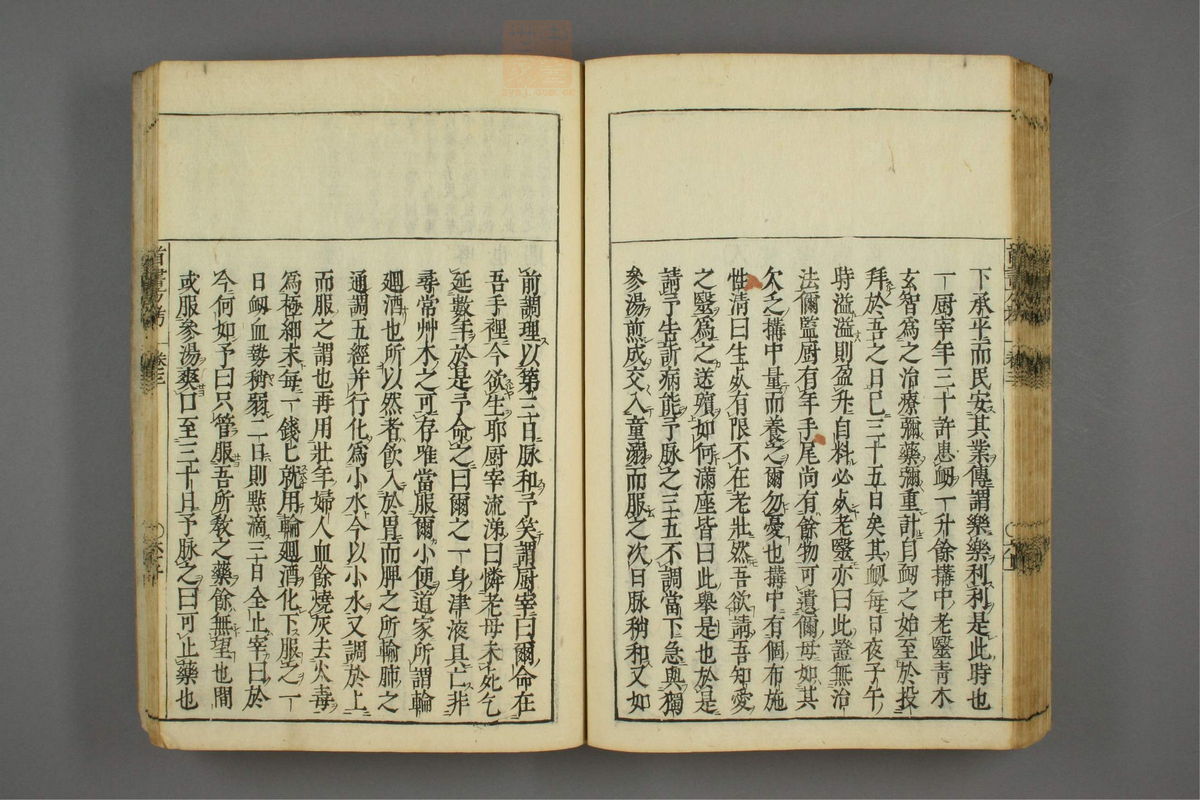 下承平而民安其業傳謂樂樂利利是此時也
一廚宰年三十許患衂一升餘搆中老毉青木
玄智爲之治療彌藥彌重計自衂之始至於投
拜於吾之日已三十五日矣其衂每日夜子午
時溢溢則盈升自料必死老毉亦曰此證無治
法儞監廚有年手尾尚有餘物可遺儞母如其
欠乏搆中量而養之爾勿憂也搆中有個布施
性淸曰生死有限不在老壯然吾欲請吾知愛
之毉爲之送殯如何滿座皆曰此舉是也於是
請予告訴病能予脉之三五不調當下急與獨
參湯煎成交入童溺而服之次日脉稍和又如
前調理以第三日脉和予笑謂廚宰曰爾命在
吾手裡今欲生耶廚宰流涕曰憐老母未死乞
延數年於是予命之曰爾之一身津液具亡非
尋常艸木之可存唯當服爾小便道家所謂輪
廻酒也所以然者飮入於胃而脾之所輸肺之
通調五經并行化爲小水今以小水又調於上
而服之謂也再用壯年婦人血餘燒灰去火毒
爲極細末每一錢匕就用輪廻酒化下服之一
日衂血勢稍弱二日則點滴三日全止宰曰於
今何如予曰只管服吾所敎之藥餘無望也間
或服參湯爽口至三十日予脉之曰可止藥也
卷三